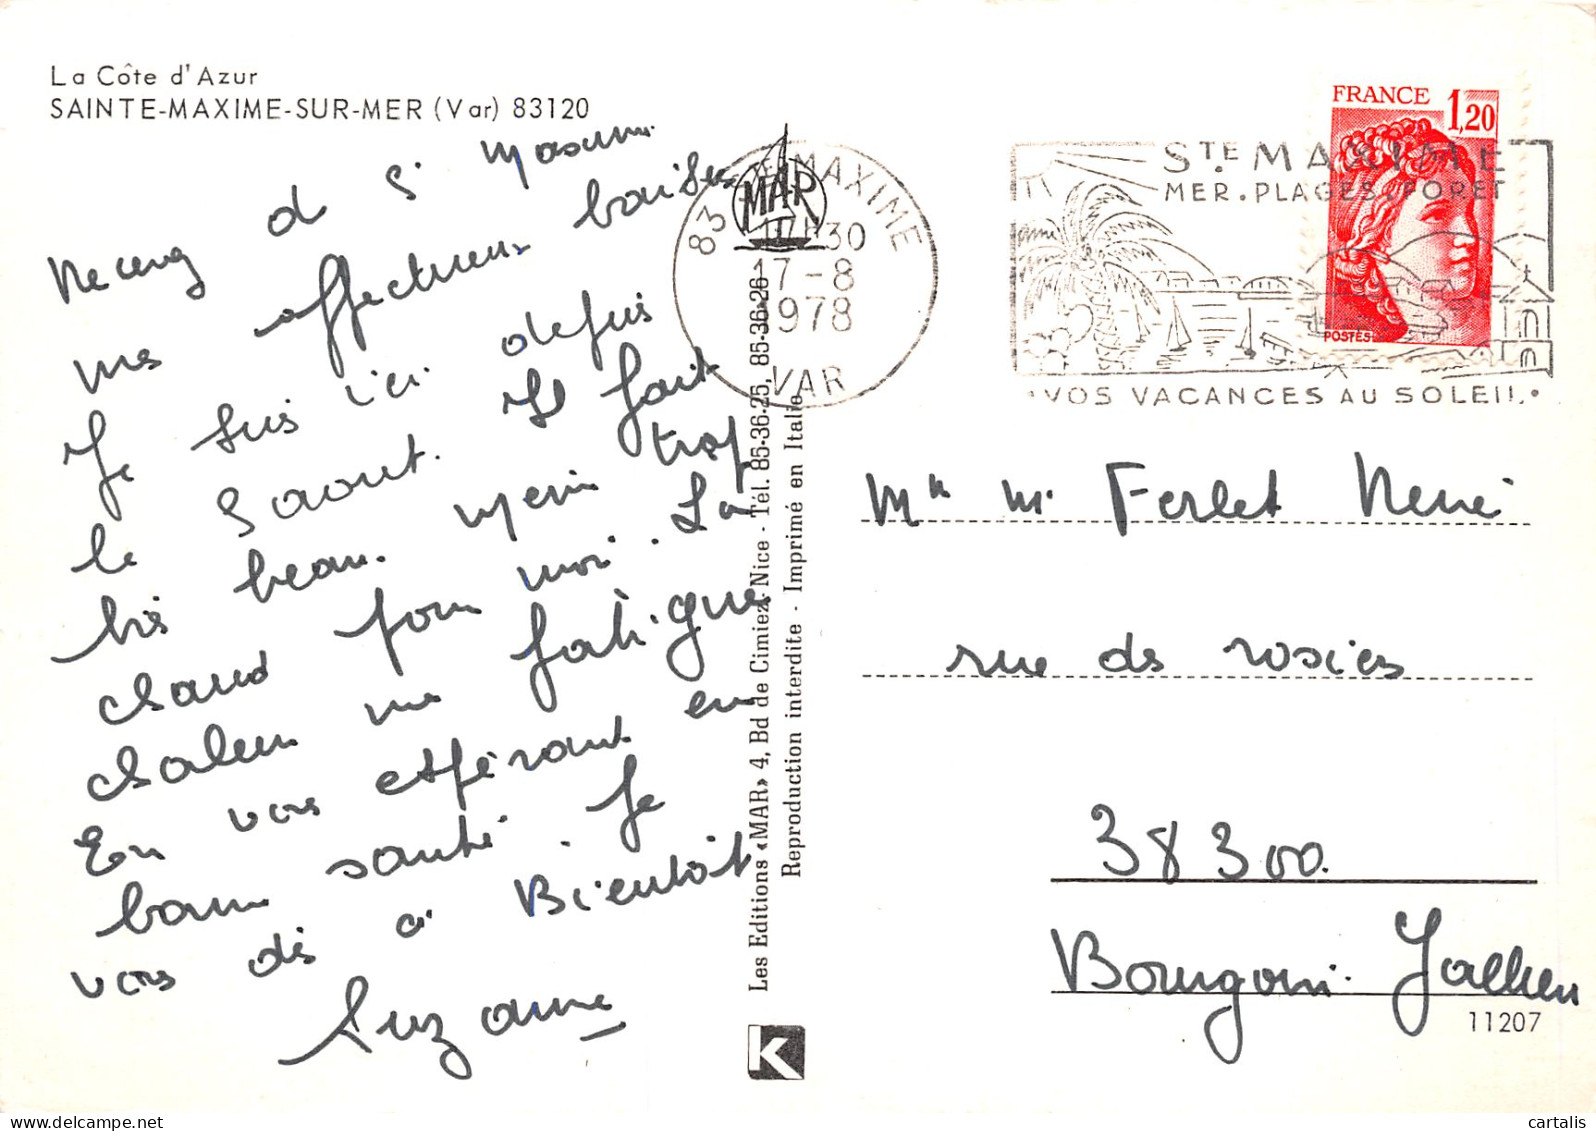 La Côte d'Azur
SAINTE-MAXIME-SUR-MER (Var) 83120
Recevez de St Maxime
mes affectueux baisers
Je suis ici depuis
le 5 aout. Il fait
très beau. même trop
chaud pour moi. La
chaleur me fatigue
En vous espérant en
bonne santé. Je
vous dis à Bientôit
Suzanne
Les Editions «MAR» 4, Bd de Cimiez-Nice - Tél. 85-36-25, 85-36-26
Reproduction interdite - Imprimé en Italie
MAR
K
83 STE MAXIME
17H30
17-8
1978
VAR
STE MAXIME
MER. PLAGES. FORET
VOS VACANCES AU SOLEIL
FRANCE 1,20
POSTES
Mr M. Ferlet René
rue des rosiers
38300.
Bourgoin. Jallieu
11207
cartalis